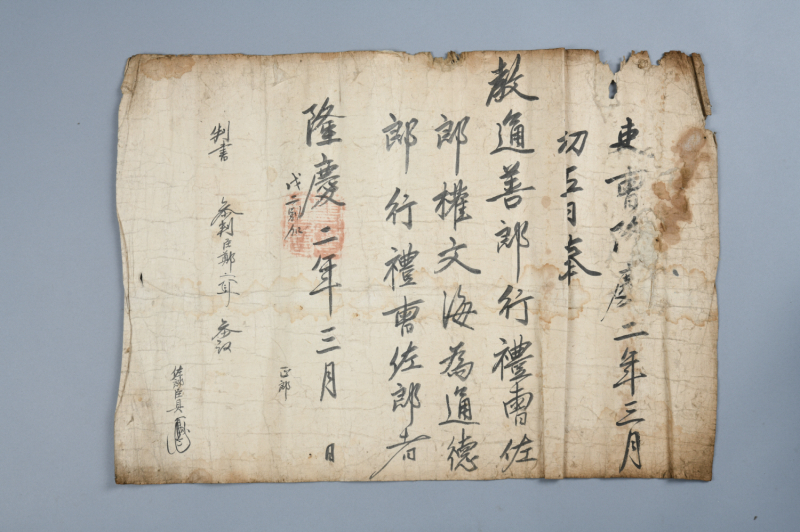 吏曹隆慶二年三月
初五日奉
教通善郎行禮曹佐
郎權文海為通德
郎行禮曹佐郎者
隆慶二年三月 日
判書 參判臣鄭 參議
正郎
佐郎臣具